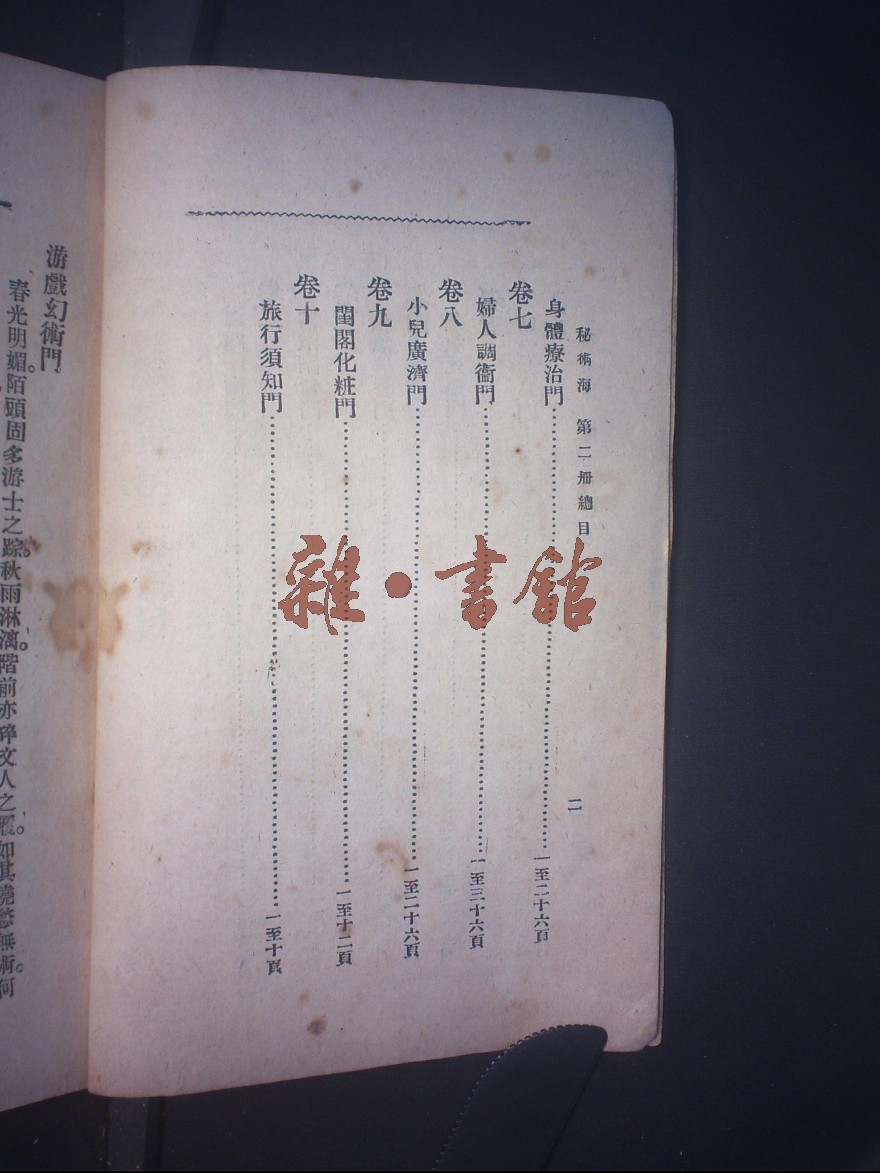 秘術海 第二册總目 二
身體療治門 一至二十六頁
卷七
婦人調衞門 一至三十六頁
卷八
小兒廣濟門 一至二十六頁
卷九
閨閣化粧門 一至十二頁
卷十
旅行須知門 一至十頁
雜·書館
游戲幻術門
春光明媚。陌頭固多游士之踪。秋雨淋漓。階前亦碎文人之 如其澆愁無術。何